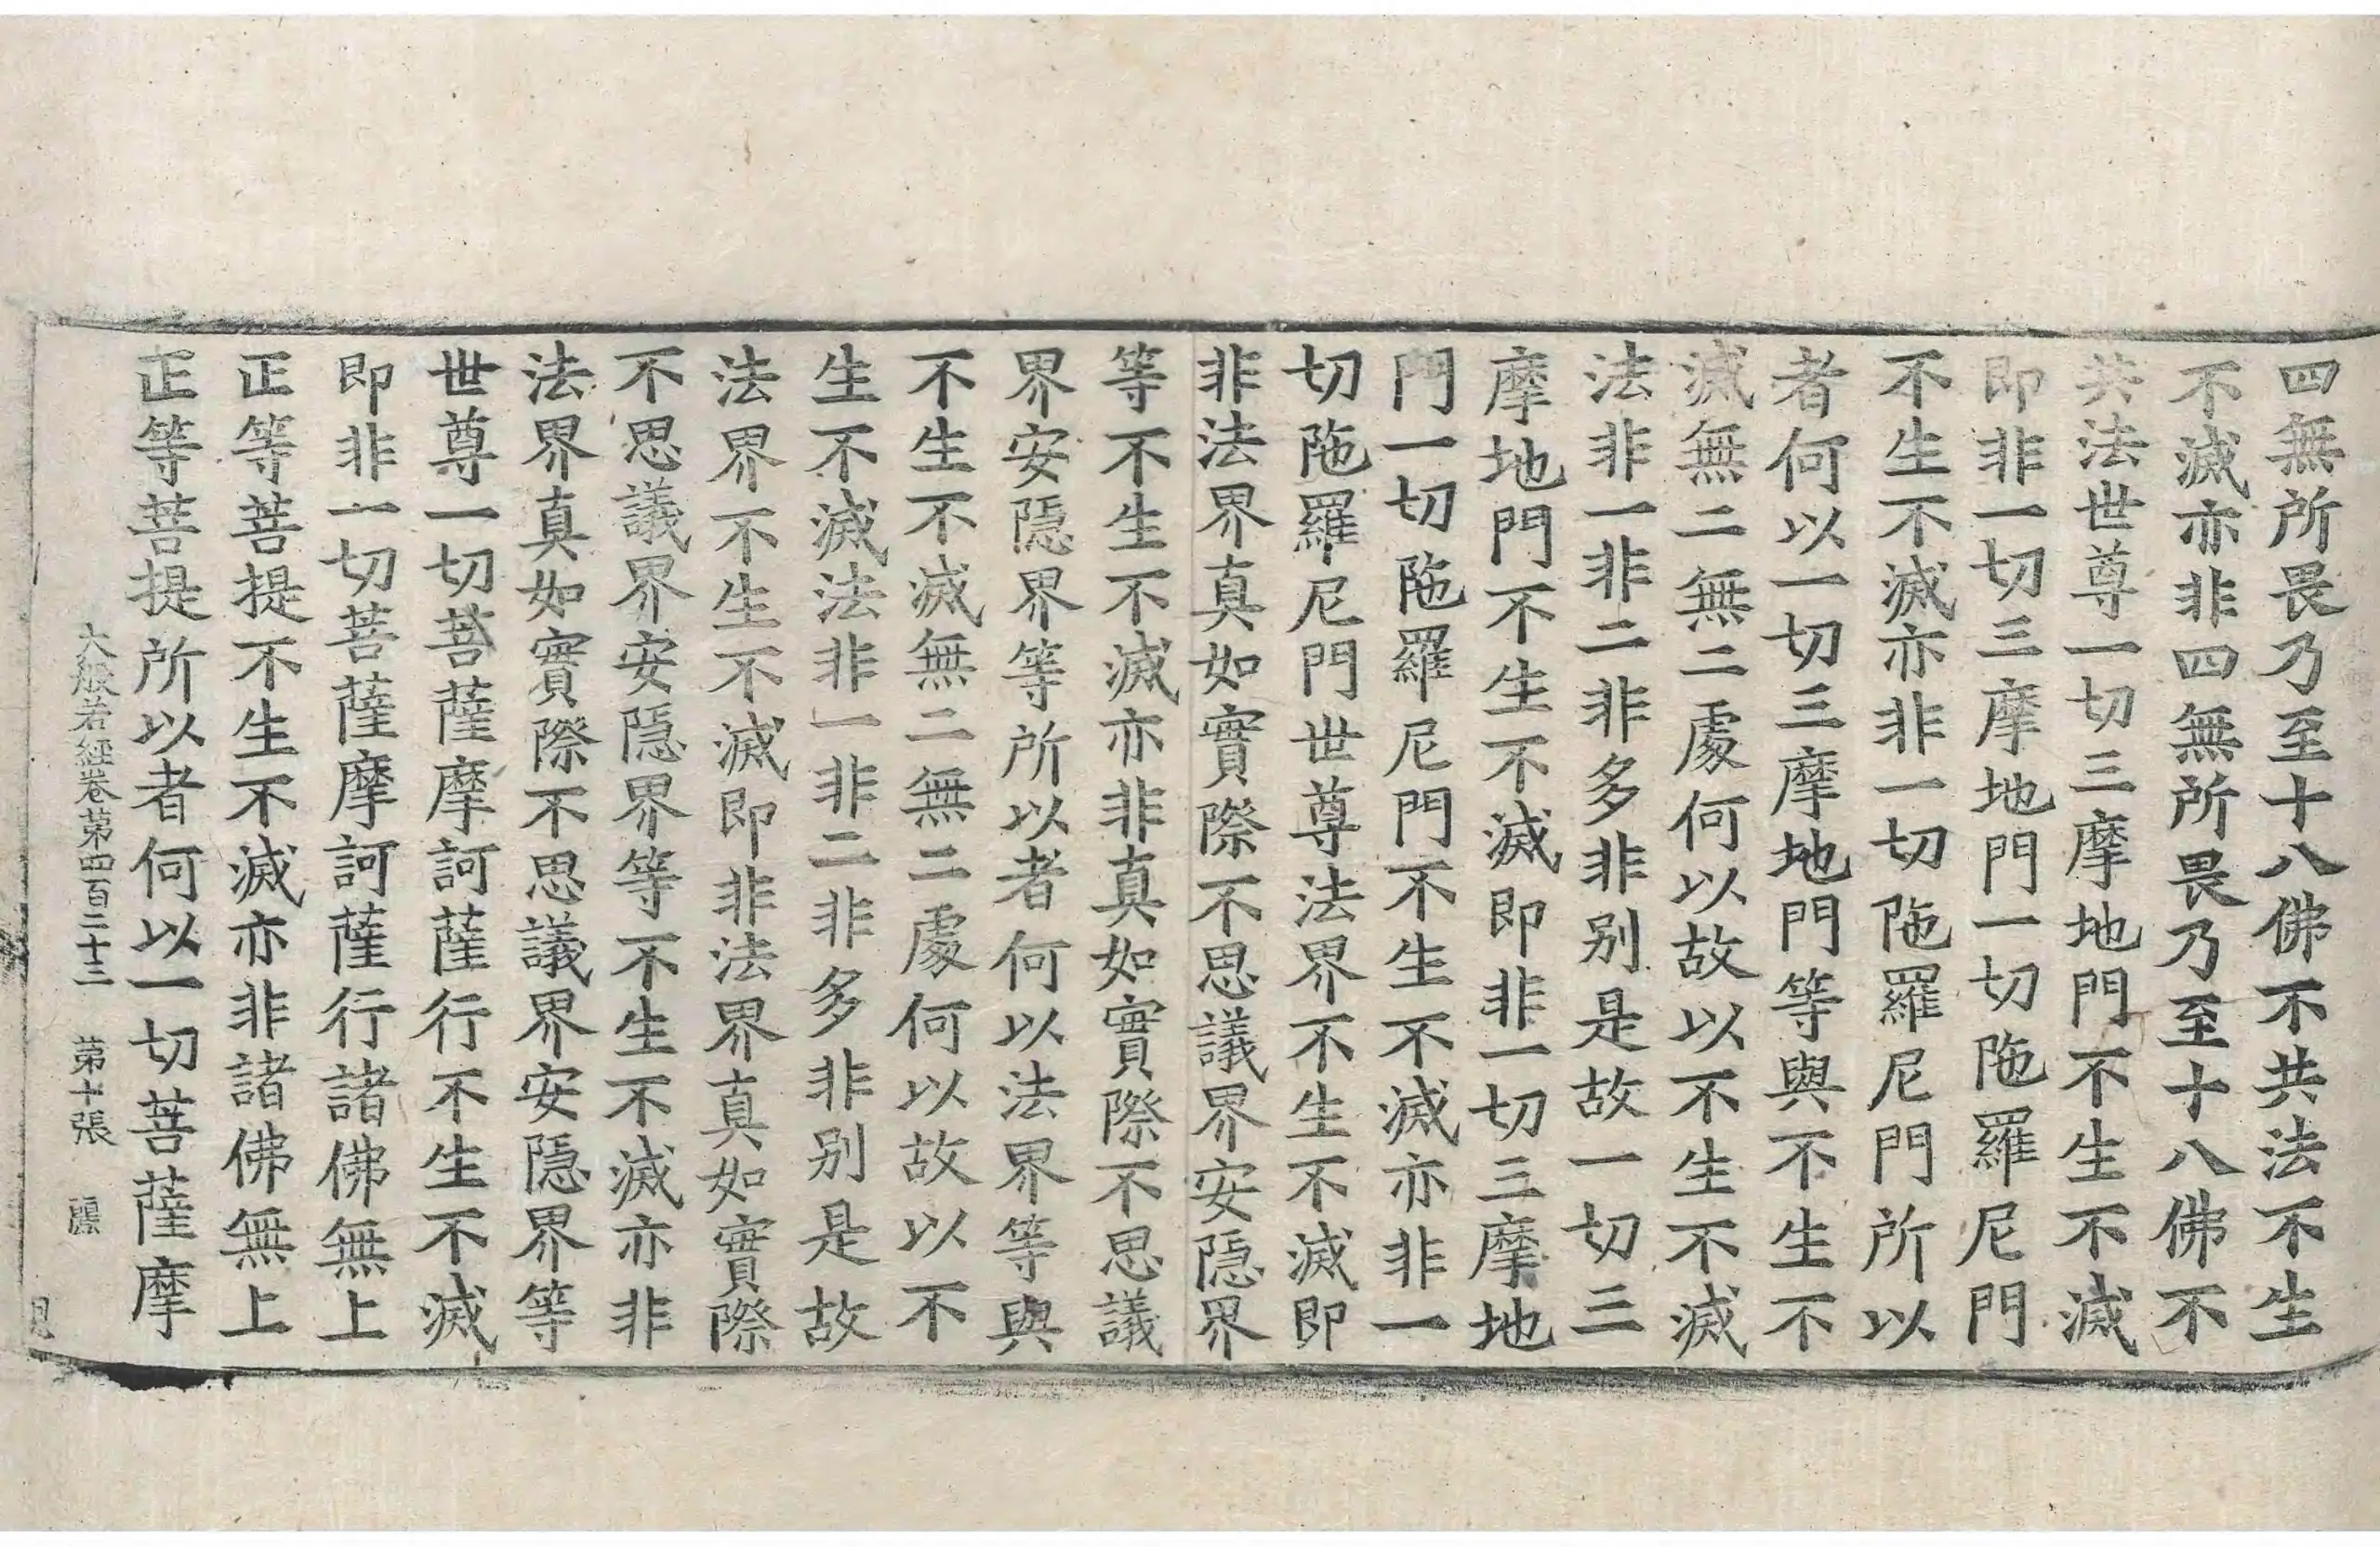 四無所畏乃至十八佛不共法不生
不滅亦非四無所畏乃至十八佛不
共法世尊一切三摩地門不生不滅
即非一切三摩地門一切陁羅尼門
不生不滅亦非一切陁羅尼門所以
者何以一切三摩地門等與不生不
滅無二無二處何以故以不生不滅
法非一非二非多非別是故一切三
摩地門不生不滅即非一切三摩地
門一切陁羅尼門不生不滅亦非一
切陁羅尼門世尊法界不生不滅即
非法界真如實際不思議界安隱界
等不生不滅亦非真如實際不思議
界安隱界等所以者何以法界等與
不生不滅無二無二處何以故以不
生不滅法非一非二非多非別是故
法界不生不滅即非法界真如實際
不思議界安隱界等不生不滅亦非
法界真如實際不思議界安隱界等
世尊一切菩薩摩訶薩行不生不滅
即非一切菩薩摩訶薩行諸佛無上
正等菩提不生不滅亦非諸佛無上
正等菩提所以者何以一切菩薩摩
大般若經卷第四百二十三 第十張